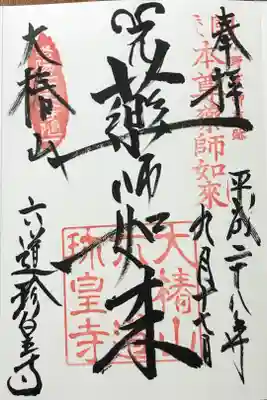 奉拝
本尊藥師如來
平成二十八年
九月十七日
薬師如来
大椿山
六道
珍皇寺
大椿山
六道珍皇寺